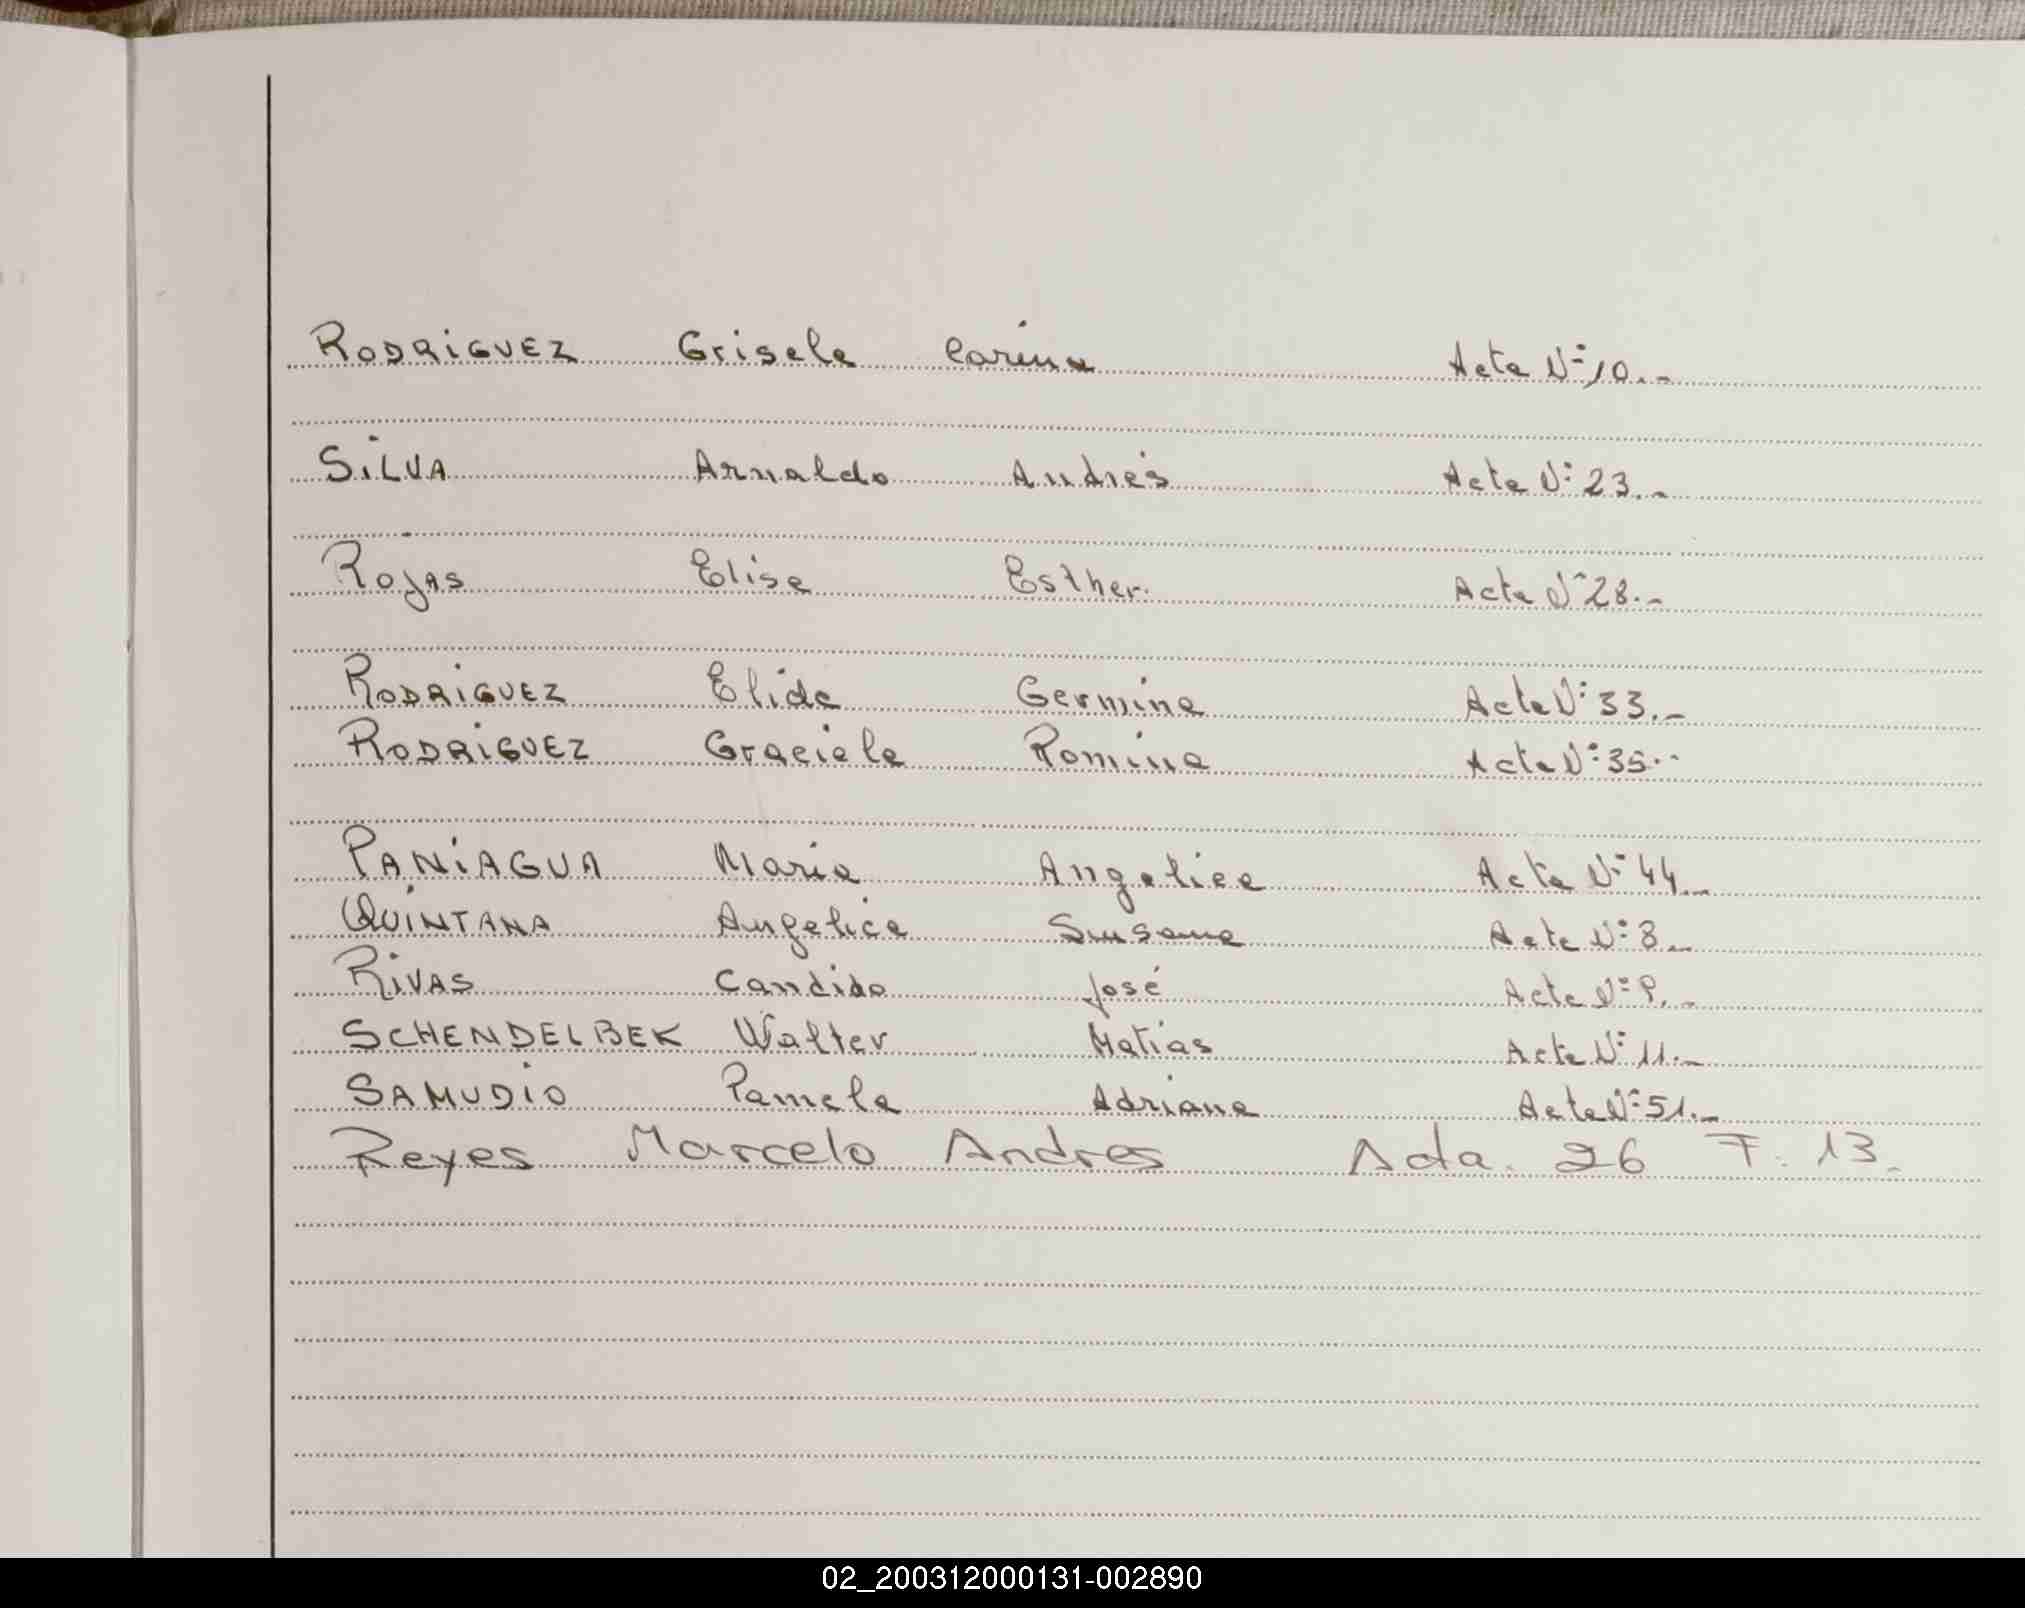 RODRIGUEZ Grisela Carina Acta Nº 10.-
SILVA Arnaldo Andrés Acta Nº 23.-
Rojas Elisa Esther. Acta Nº 28.-
RODRIGUEZ Elida Germina Acta Nº 33.-
RODRIGUEZ Graciela Romina Acta Nº 35.-
PANIAGUA Maria Angelica Acta Nº 44.-
QUINTANA Angelica Susana Acta Nº 8.-
RIVAS Candido José Acta Nº 9.-
SCHENDELBEK Walter Matias Acta Nº 11.-
SAMUDIO Pamela Adriana Acta Nº 51.-
Reyes Marcelo Andres Acta. 26 F. 13.
02_200312000131-002890